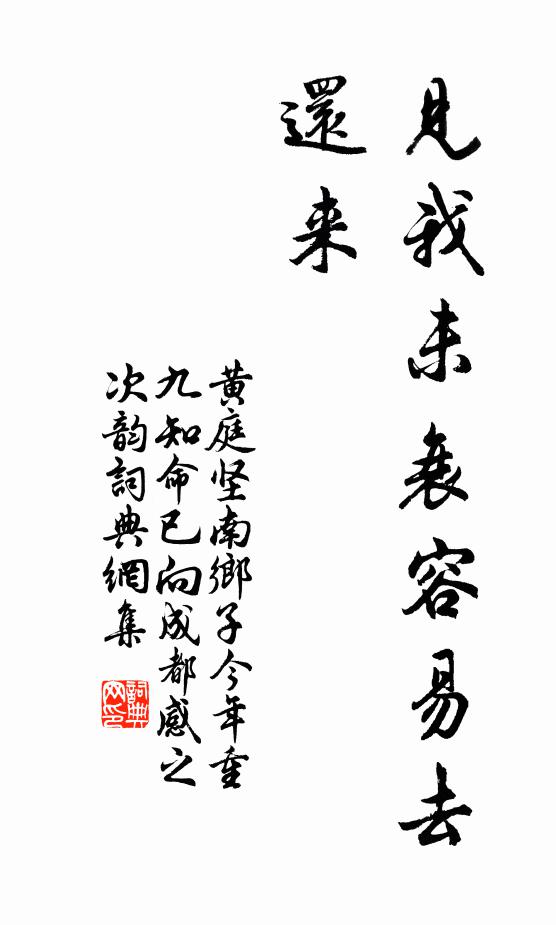 見我未衰容易去
還来
黄庭坚南鄉子今年重
九知命已向成都感之
次韵詞典網集
詞典網印